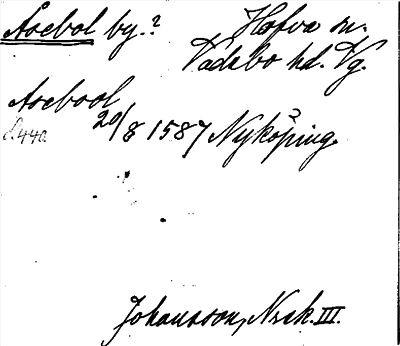 Asebol by.? Hofva sn.
Vadsbo hd. Vg.
Asebool
20/8 1587 Nyköping.
s. 440.
Johansson, Nrsk. III.